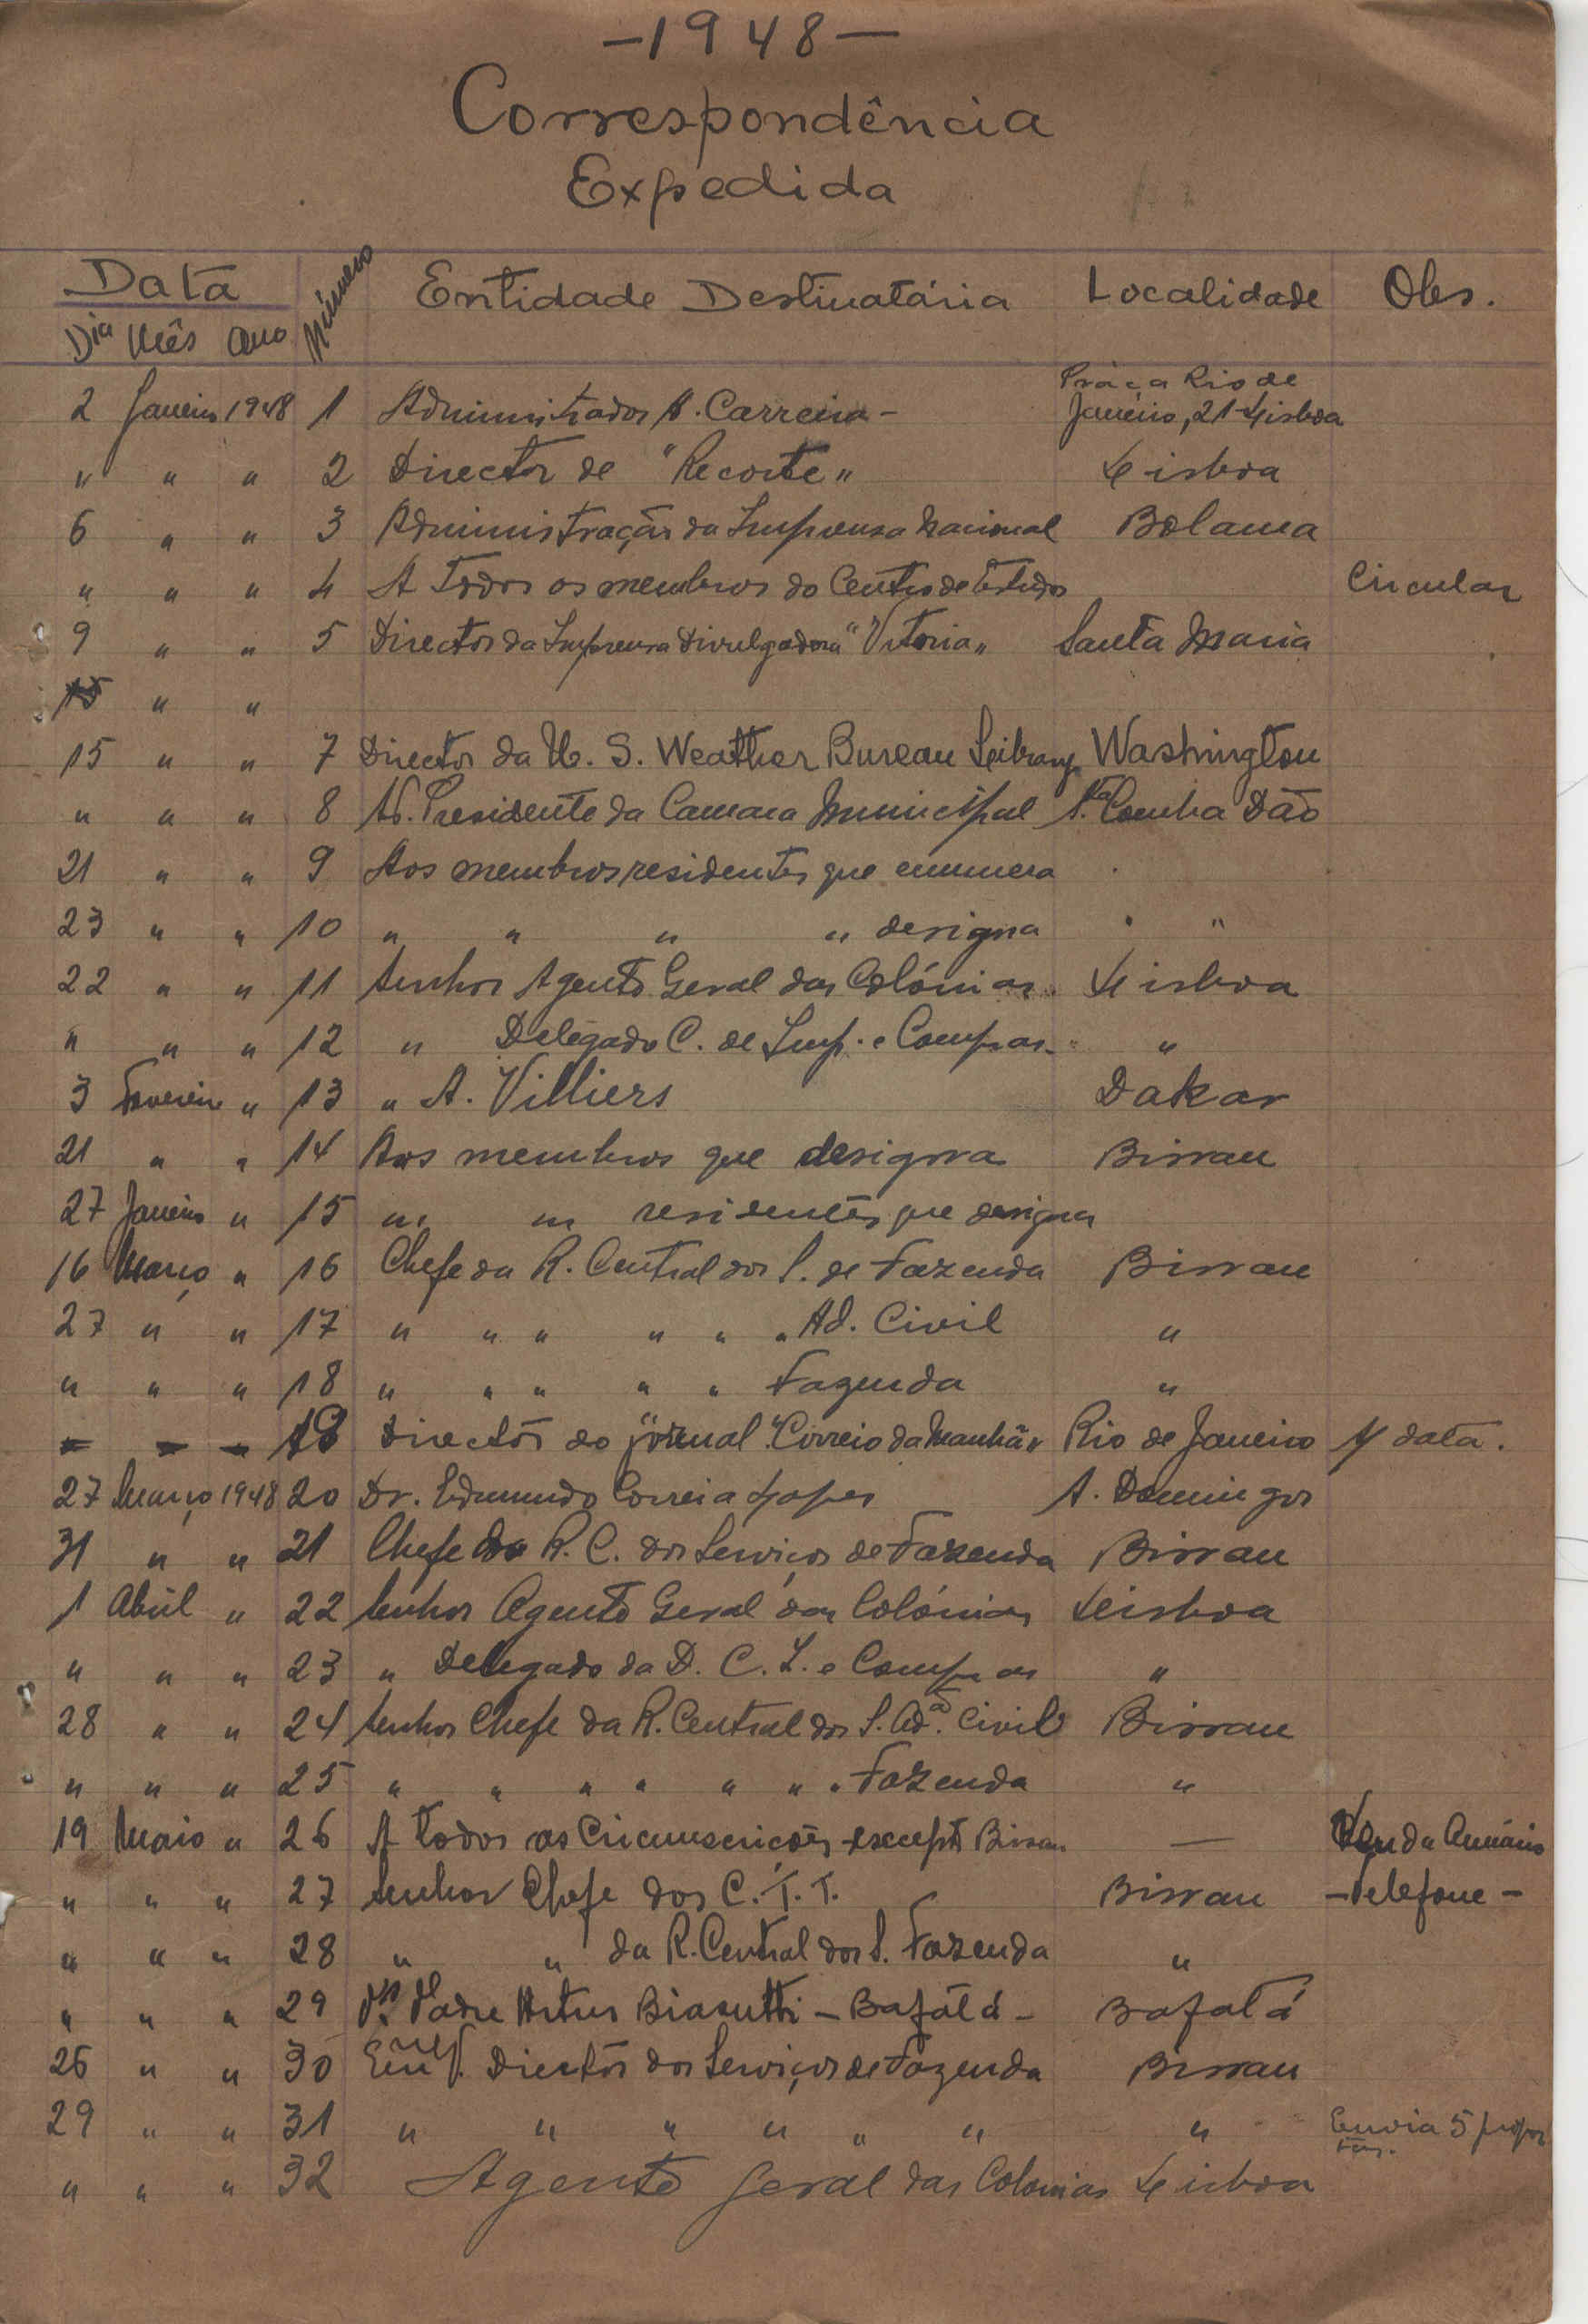 —1948—
Correspondência
Expedida
Data Número Entidade Destinatária Localidade Obs.
Dia Mês Ano
2 Janeiro 1948 1 Administrador A. Carreira - Praça Rio de Janeiro, 21 Lisboa
" " " 2 Director de "Recorte" Lisboa
6 " " 3 Administração da Imprensa Nacional Bolama
" " " 4 A Todos os membros do Centro de Estudos Circular
9 " " 5 Director da Imprensa Divulgadora "Vitoria" Santa Maria
15 " "
15 " " 7 Director da U. S. Weather Bureau Washington
" " " 8 Presidente da Camara Municipal Comba Dão
21 " " 9 Aos membros residentes que enumera
23 " " 10 " " " " designa "
22 " " 11 Senhor Agente Geral das Colónias Lisboa
" " " 12 " Delegado C. de Imp. e Compras "
3 Fevereiro " 13 " A. Villiers Dakar
21 " " 14 Aos membros que designa Bissau
27 Janeiro " 15 " " residentes que designa
16 Março " 16 Chefe da R. Central dos S. de Fazenda Bissau
27 " " 17 " " " " " " Ad. Civil "
" " " 18 " " " " " Fazenda "
- - - 19 Directôr do jornal "Correio da Manhã" Rio de Janeiro s/ data.
27 Março 1948 20 Dr. Edmundo Correia Lopes S. Domingos
31 " " 21 Chefe da R. C. dos Serviços de Fazenda Bissau
1 Abril " 22 Senhor Agente Geral das Colónias Lisboa
" " " 23 " Delegado da D. C. I. e Compras "
28 " " 24 Senhor Chefe da R. Central dos S. Ad. Civil Bissau
" " " 25 " " " " " " " Fazenda "
19 Maio " 26 A todas as Circunscrições excepto Bissau — Venda Anuário
" " " 27 Senhor Chefe dos C.T.T. Bissau - Telefone -
" " " 28 " " da R. Central dos S. Fazenda "
" " " 29 Padre Artur Biasutti - Bafatá - Bafatá
26 " " 30 Directôr dos Serviços de Fazenda Bissau
29 " " 31 " " " " " " " Envia 5
" " " 32 Agente Geral das Colonias Lisboa